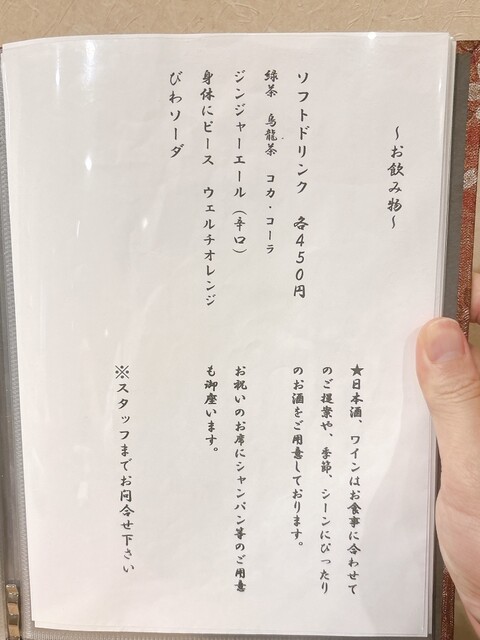 ～お飲み物～
ソフトドリンク　各４５０円
緑茶　烏龍茶　コカ・コーラ
ジンジャーエール（辛口）
身体にピース　ウェルチオレンジ
びわソーダ
★日本酒、ワインはお食事に合わせて
のご提案や、季節、シーンにぴったり
のお酒をご用意しております。
お祝いのお席にシャンパン等のご用意
も御座います。
※スタッフまでお問合せ下さい